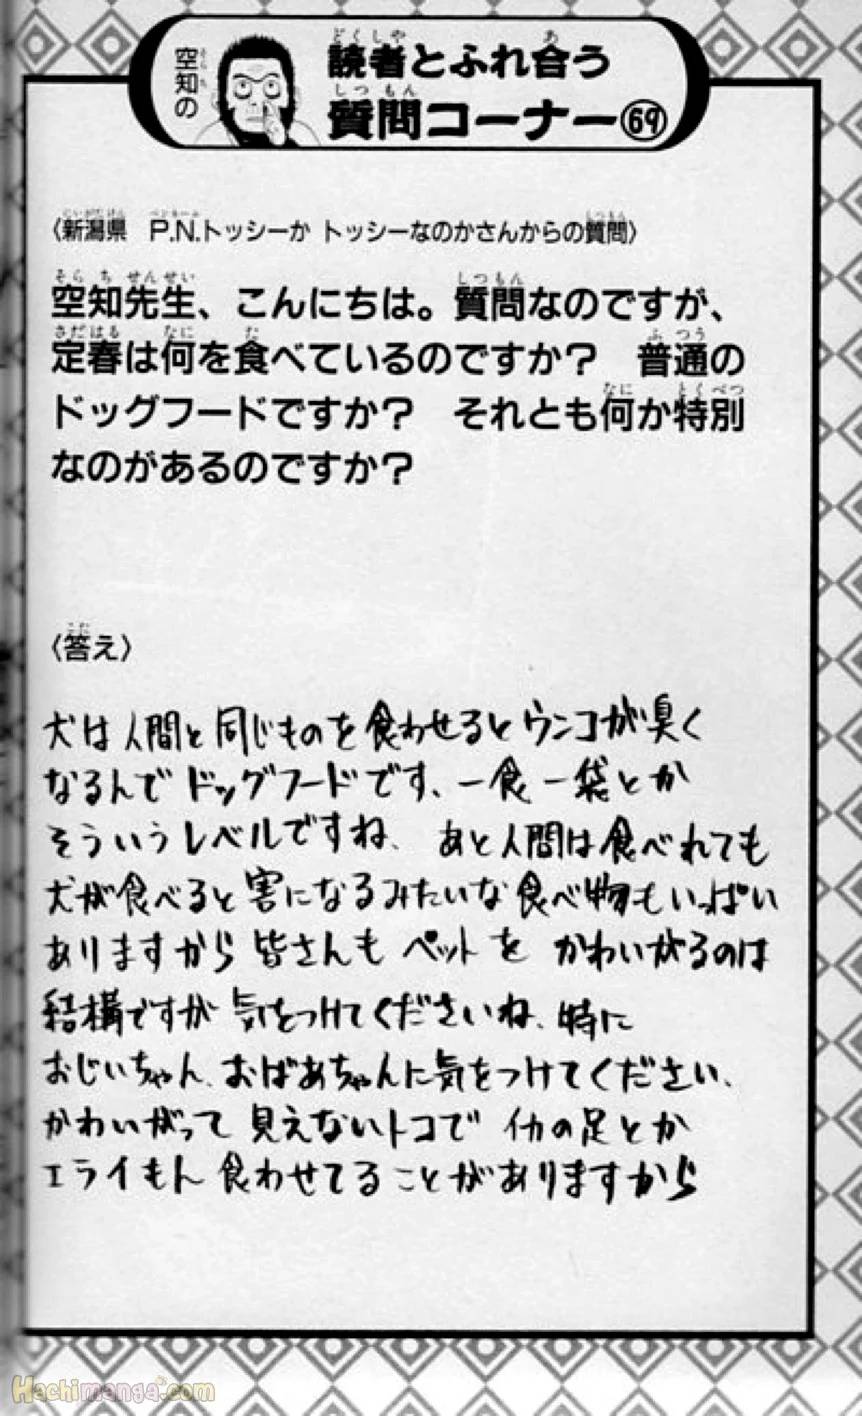 空知の
読者とふれ合う
質問コーナー69
〈新潟県　P.N.トッシーか トッシーなのかさんからの質問〉
空知先生、こんにちは。質問なのですが、
定春は何を食べているのですか？　普通の
ドッグフードですか？　それとも何か特別
なのがあるのですか？
〈答え〉
犬は人間と同じものを食わせるとウンコが臭く
なるんでドッグフードです、一食一袋とか
そういうレベルですね、あと人間は食べれても
犬が食べると害になるみたいな食べ物もいっぱい
ありますから皆さんもペットをかわいがるのは
結構ですが気をつけてくださいね、特に
おじいちゃん、おばあちゃんに気をつけてください、
かわいがって見えないトコでイカの足とか
エライもん食わせてることがありますから
Hachimanga.com